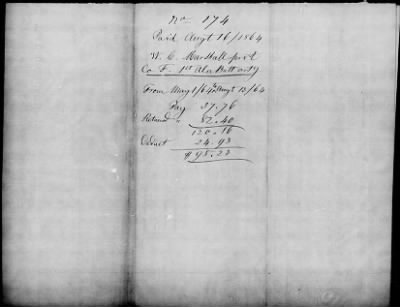 No 174
Paid Augt 16/1864
W. C. Marshall prvt
Co F. 1st Ala Batt arty
From May 1/64 to Augt 12/64
Pay 37.76
Retained " 82.40
120.16
Deduct 24.93
$ 95.23